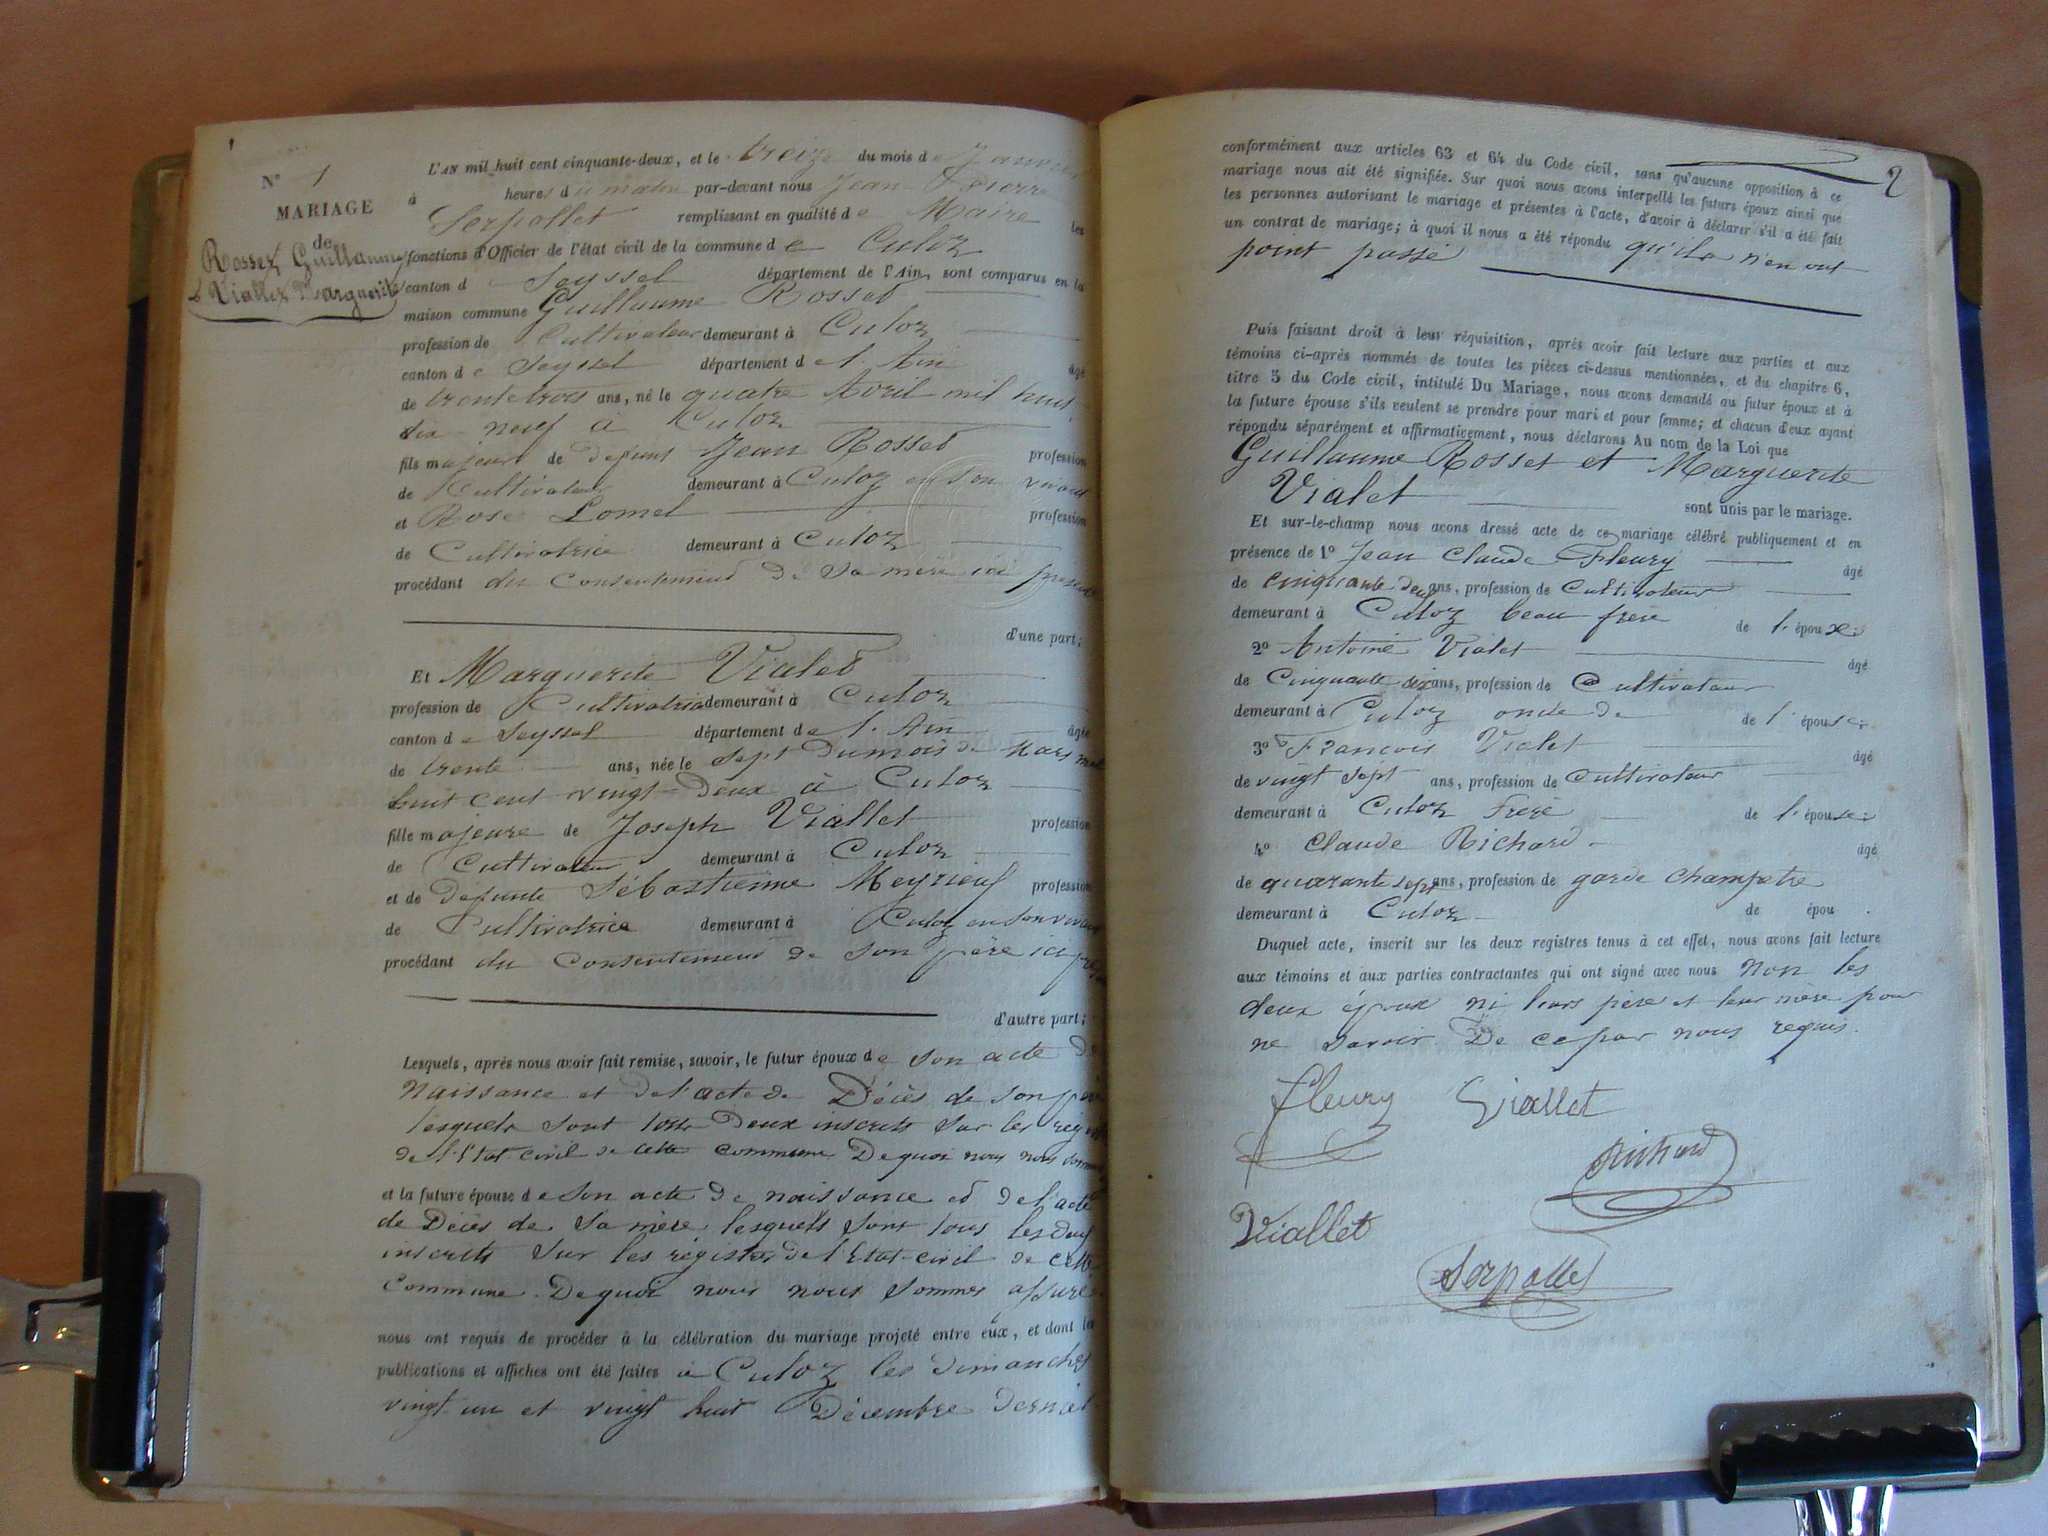 1
N° 1
MARIAGE
de
Rosset Guillaume
& Viallet Marguerite
L'AN mil huit cent cinquante-deux, et le treize du mois de Janvier
à heures du matin par-devant nous Jean Pierre
Serpollet remplissant en qualité de Maire les
fonctions d'Officier de l'état civil de la commune de Culoz
canton d Seyssel département de l'Ain, sont comparus en la
maison commune Guillaume Rosset
profession de Cultivateur demeurant à Culoz
canton de Seyssel département de l'Ain âgé
de trente trois ans, né le quatre Avril mil huit
dix neuf à Culoz
fils majeur de defunt Jean Rosset profession
de Cultivateur demeurant à Culoz en son vivant
et Rose Lomel profession
de Cultivatrice demeurant à Culoz
procédant du Consentement de sa mère ici presente
d'une part;
Et Marguerite Vialet
profession de Cultivatrice demeurant à Culoz
canton de Seyssel département de l'Ain âgée
de trente ans, née le sept Du mois de Mars mil
huit cent vingt-deux à Culoz
fille majeure de Joseph Viallet profession
de Cultivateur demeurant à Culoz
et de defunte Sébastienne Meyrieuf profession
de Cultivatrice demeurant à Culoz en son vivant
procédant du Consentement de son père ici
d'autre part;
Lesquels, après nous avoir fait remise, savoir, le futur époux de son acte de
Naissance et de l'acte de Décès de son père
lesquels sont tous Deux inscrits sur les
de l'Etat civil de cette commune De quoi nous nous
et la future épouse de son acte de naissance et de l'acte
de Décès de sa mère lesquels sont tous les deux
inscrits sur les régistres de l'Etat-civil de cette
Commune. De quoi nous nous sommes assurés
nous ont requis de procéder à la célébration du mariage projeté entre eux, et dont les
publications et affiches ont été faites à Culoz les dimanches
vingt-un et vingt huit Décembre dernier
2
conformément aux articles 63 et 64 du Code civil, sans qu'aucune opposition à ce
mariage nous ait été signifiée. Sur quoi nous avons interpellé les futurs époux ainsi que
les personnes autorisant le mariage et présentes à l'acte, d'avoir à déclarer s'il a été fait
un contrat de mariage; à quoi il nous a été répondu qu'ils n'en ont
point passé
Puis faisant droit à leur réquisition, après avoir fait lecture aux parties et aux
témoins ci-après nommés de toutes les pièces ci-dessus mentionnées, et du chapitre 6,
titre 5 du Code civil, intitulé Du Mariage, nous avons demandé au futur époux et à
la future épouse s'ils veulent se prendre pour mari et pour femme; et chacun d'eux ayant
répondu séparément et affirmativement, nous déclarons Au nom de la Loi que
Guillaume Rosset et Marguerite
Vialet sont unis par le mariage.
Et sur-le-champ nous avons dressé acte de ce mariage célébré publiquement et en
présence de 1° Jean Claude Fleury âgé
de cinquante deux ans, profession de Cultivateur
demeurant à Culoz beau frère de l'épouse
2° Antoine Vialet âgé
de Cinquante six ans, profession de Cultivateur
demeurant à Culoz oncle de de l'épouse
3° François Vialet âgé
de vingt sept ans, profession de Cultivateur
demeurant à Culoz Frère de l'épouse
4° Claude Richard âgé
de quarante sept ans, profession de garde Champetre
demeurant à Culoz de épou .
Duquel acte, inscrit sur les deux registres tenus à cet effet, nous avons fait lecture
aux témoins et aux parties contractantes qui ont signé avec nous non les
deux époux ni leurs père et leur mère pour
ne savoir De ce par nous requis.
fleury Viallet
Richard
Viallet
Serpollet